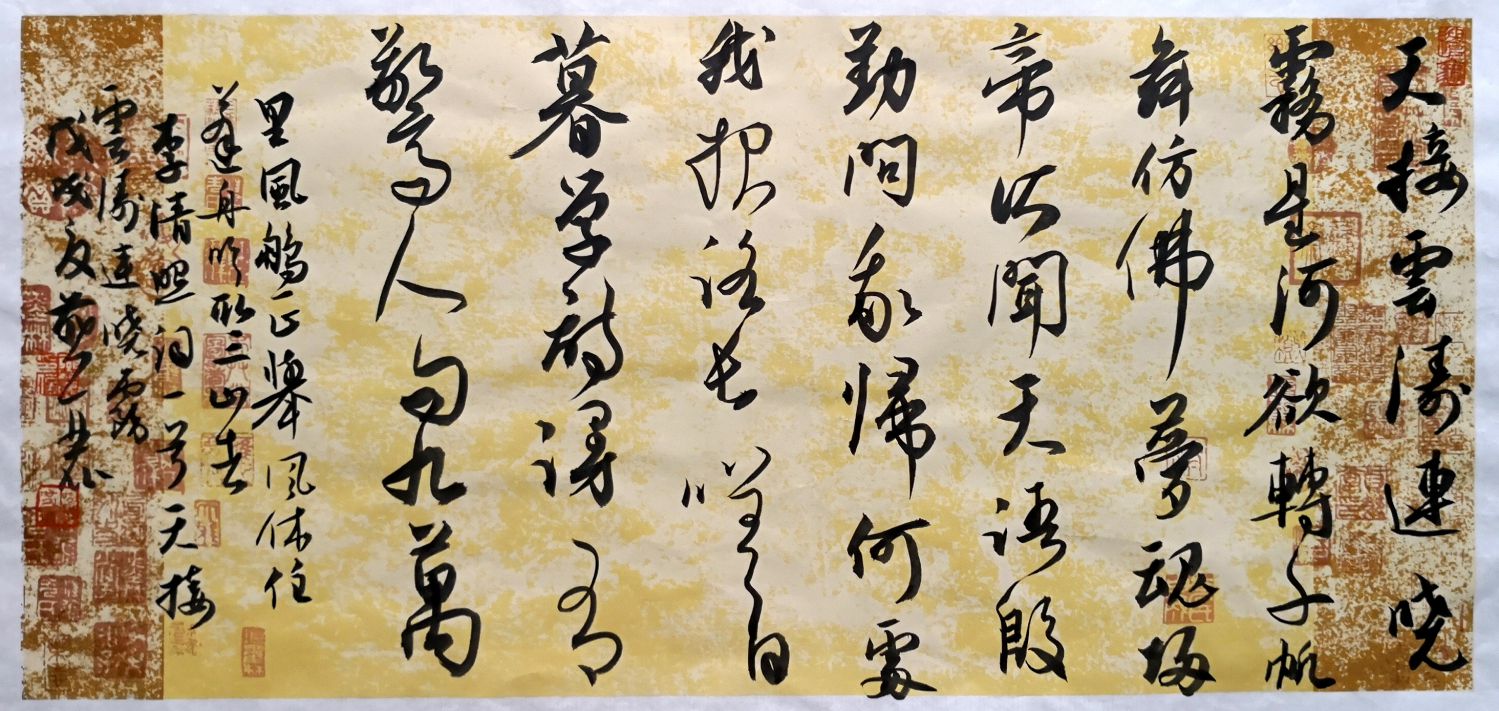 天接雲濤連曉
霧星河欲轉千帆
舞仿佛夢魂歸
帝所聞天語殷
勤問我歸何處
我報路長嗟日
暮學詩謾有
驚人句九萬
里風鵬正舉風休住
蓬舟吹取三山去
李清照詞一首天接
雲濤連曉霧
戊戌夏